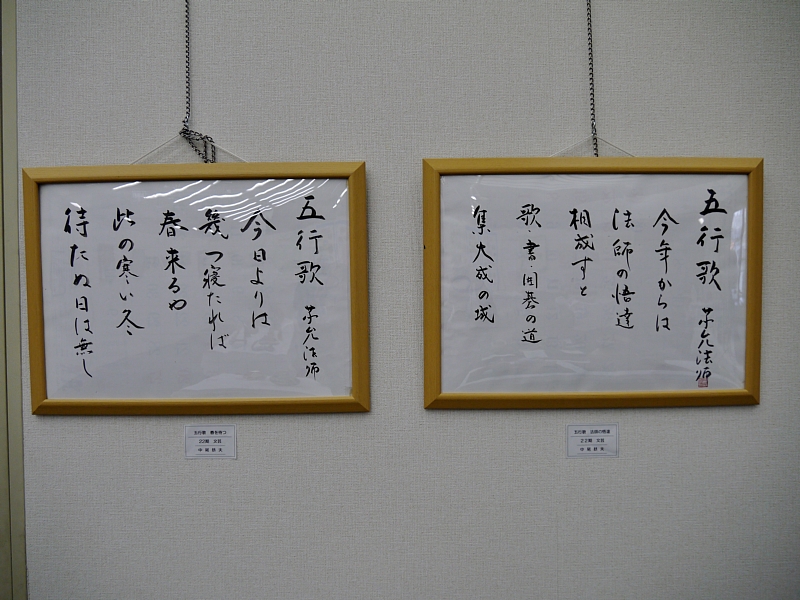 五行歌
今日よりは
幾つ寝たれば
春来るや
此の寒い冬
待たぬ日は無し
五行歌 春を待つ
22期 文芸
五行歌
今年からは
法師の悟達
相成すと
歌、書、囲碁の道
集大成の域
五行歌 法師の悟達
22期 文芸